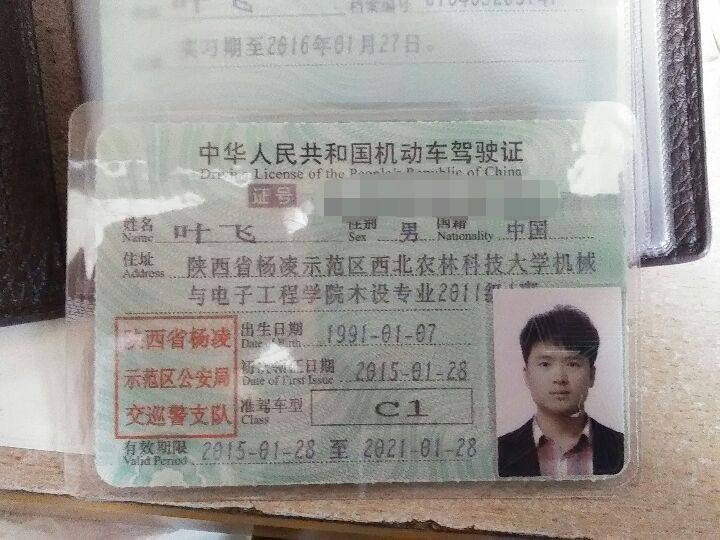 叶飞 档案编号
实习期至2016年01月27日。
中华人民共和国机动车驾驶证
Driving License of the People's Republic of China
证号
姓名 叶飞 性别 男 国籍 中国
Name Sex Nationality
住址 陕西省杨凌示范区西北农林科技大学机械
Address 与电子工程学院木设专业2011级1班
陕西省杨凌
示范区公安局
交巡警支队
出生日期 1991-01-07
Date of Birth
初次领证日期 2015-01-28
Date of First Issue
准驾车型 C1
Class
有效期限 2015-01-28 至 2021-01-28
Valid Period